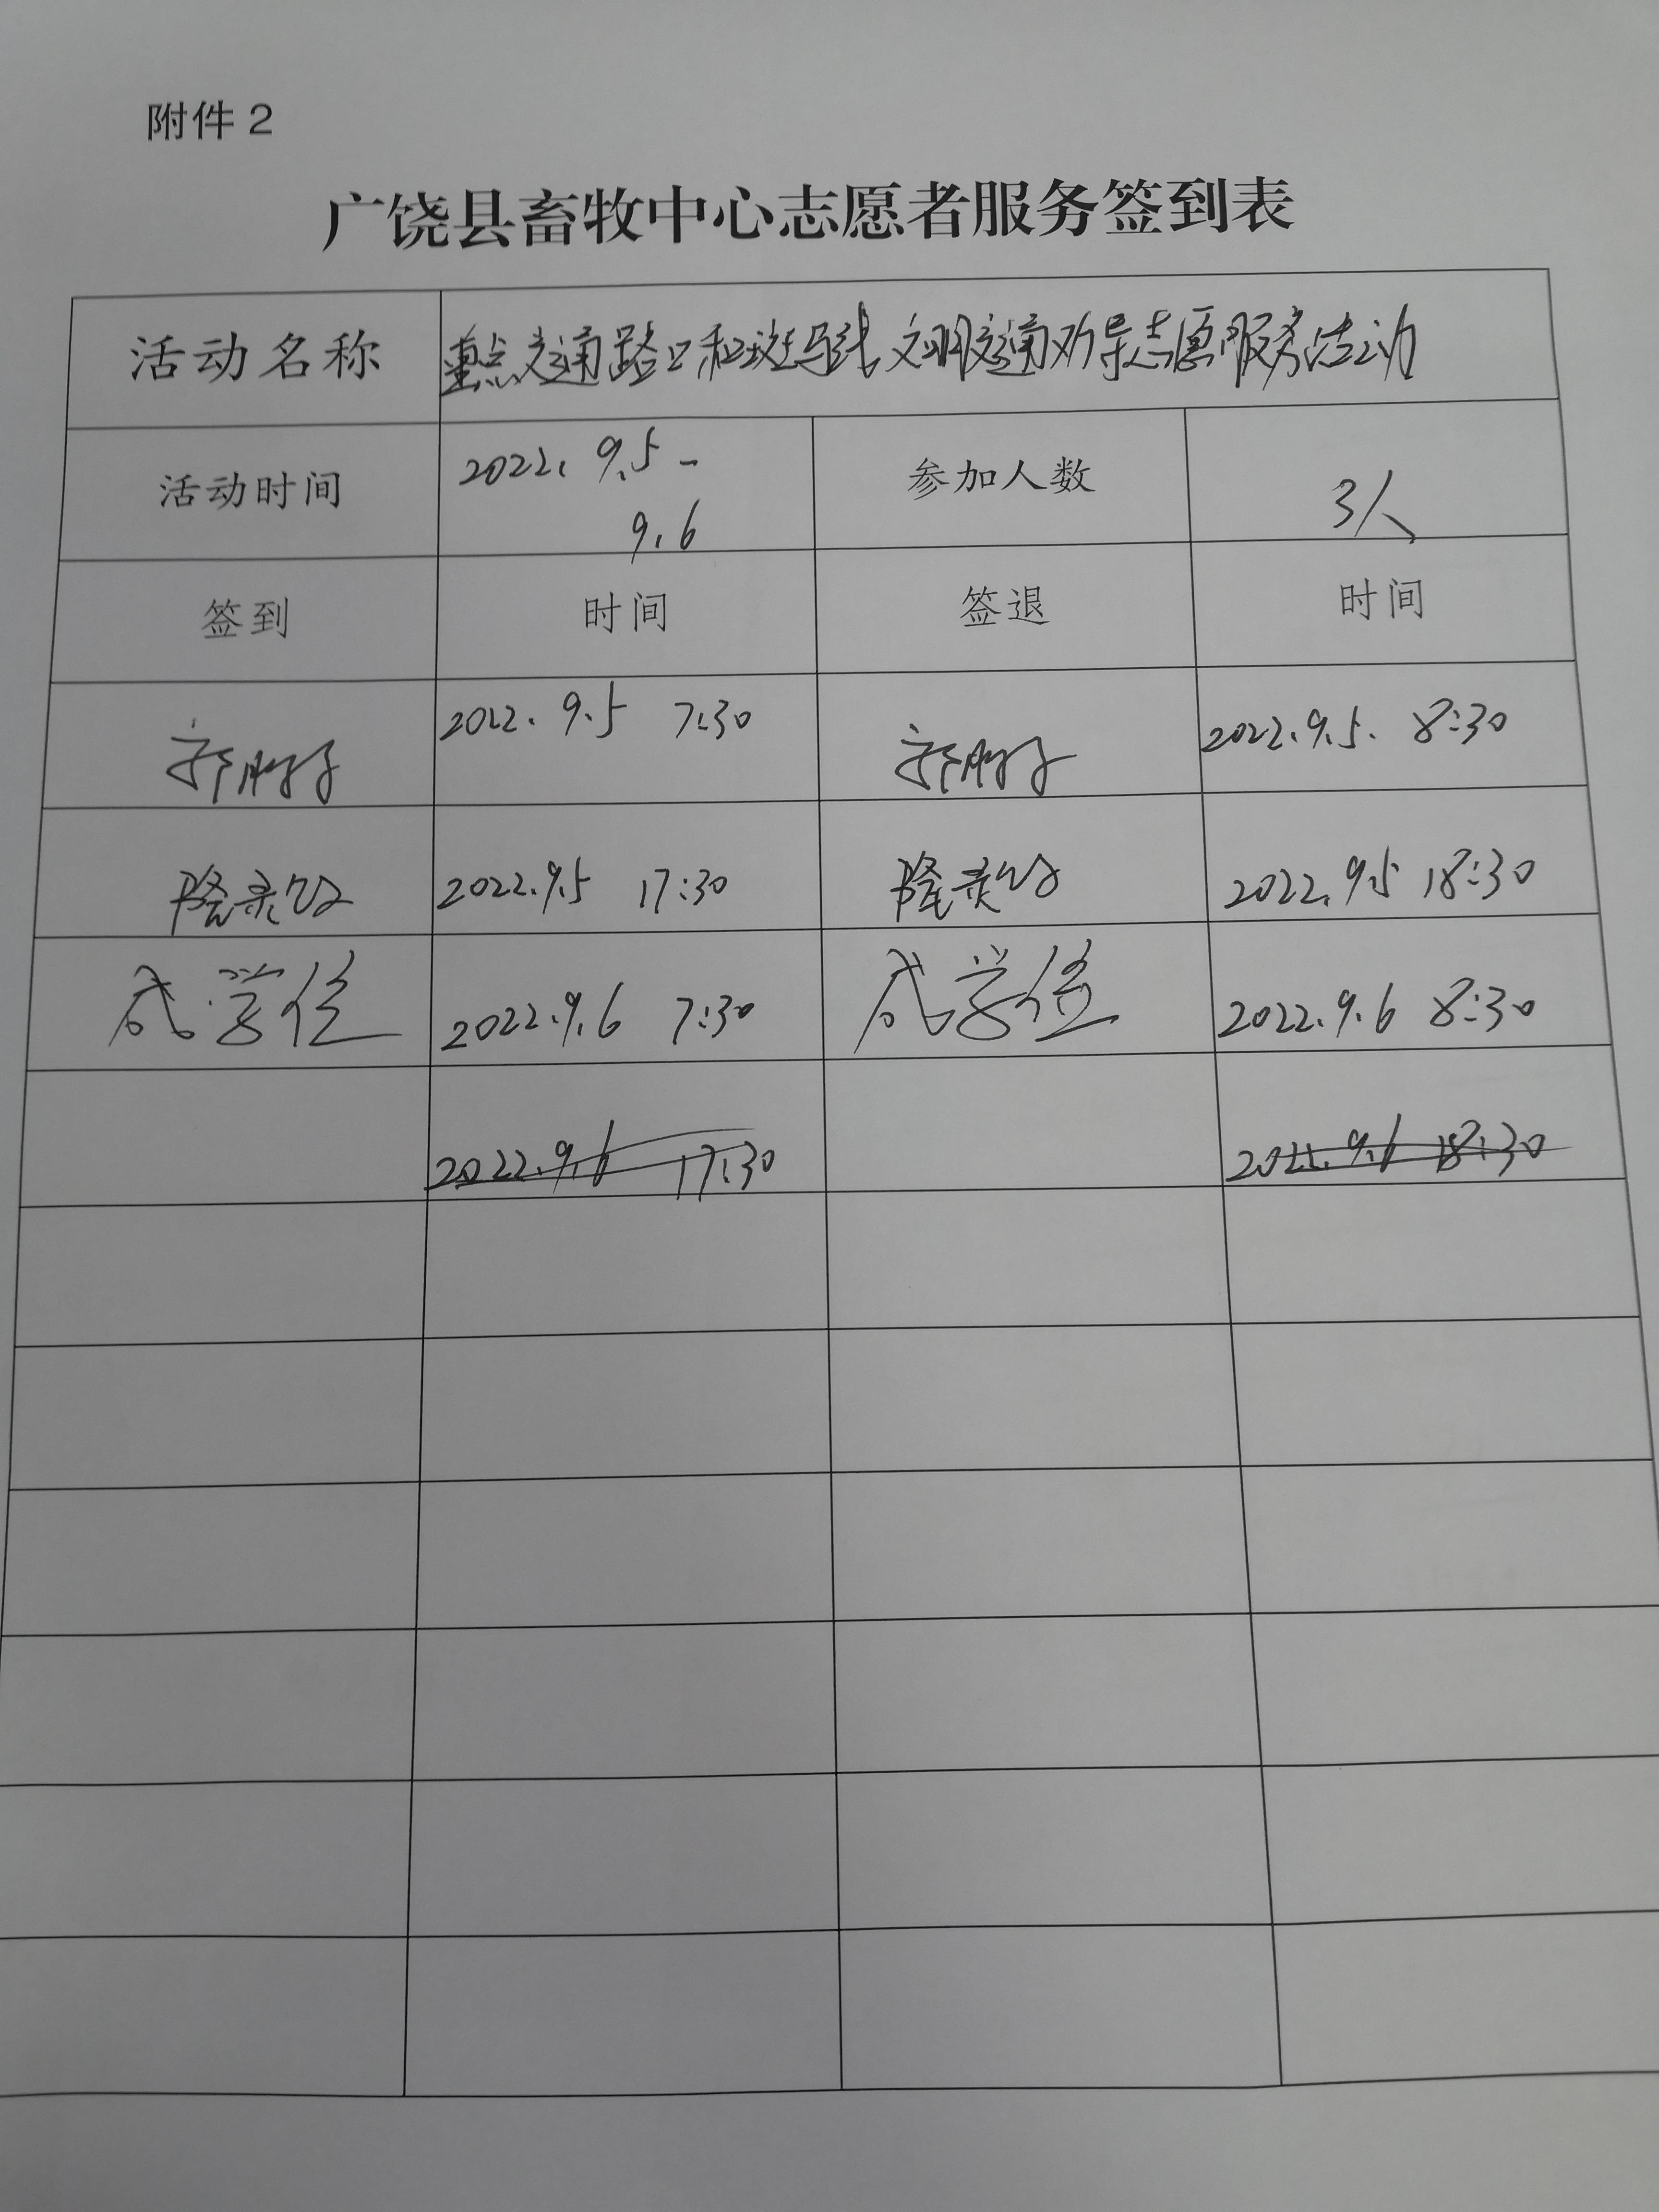 附件2
广饶县畜牧中心志愿者服务签到表
活动名称 重点交通路口和斑马线文明交通劝导志愿服务活动
活动时间 2022.9.5- 参加人数 3人
9.6
签到 时间 签退 时间
2022.9.5 7:30 2022.9.5. 8:30
2022.9.5 17:30 2022.9.5 18:30
成学信 2022.9.6 7:30 成学信 2022.9.6 8:30
2022.9.6 17:30 2022.9.6 18:30